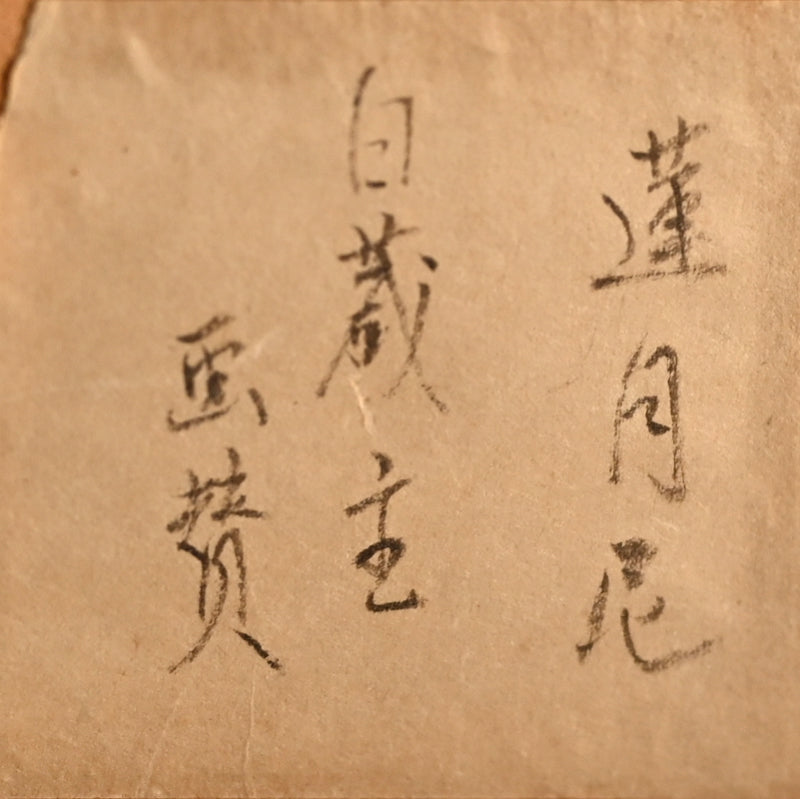 蓮月尼
白蔵主
画賛